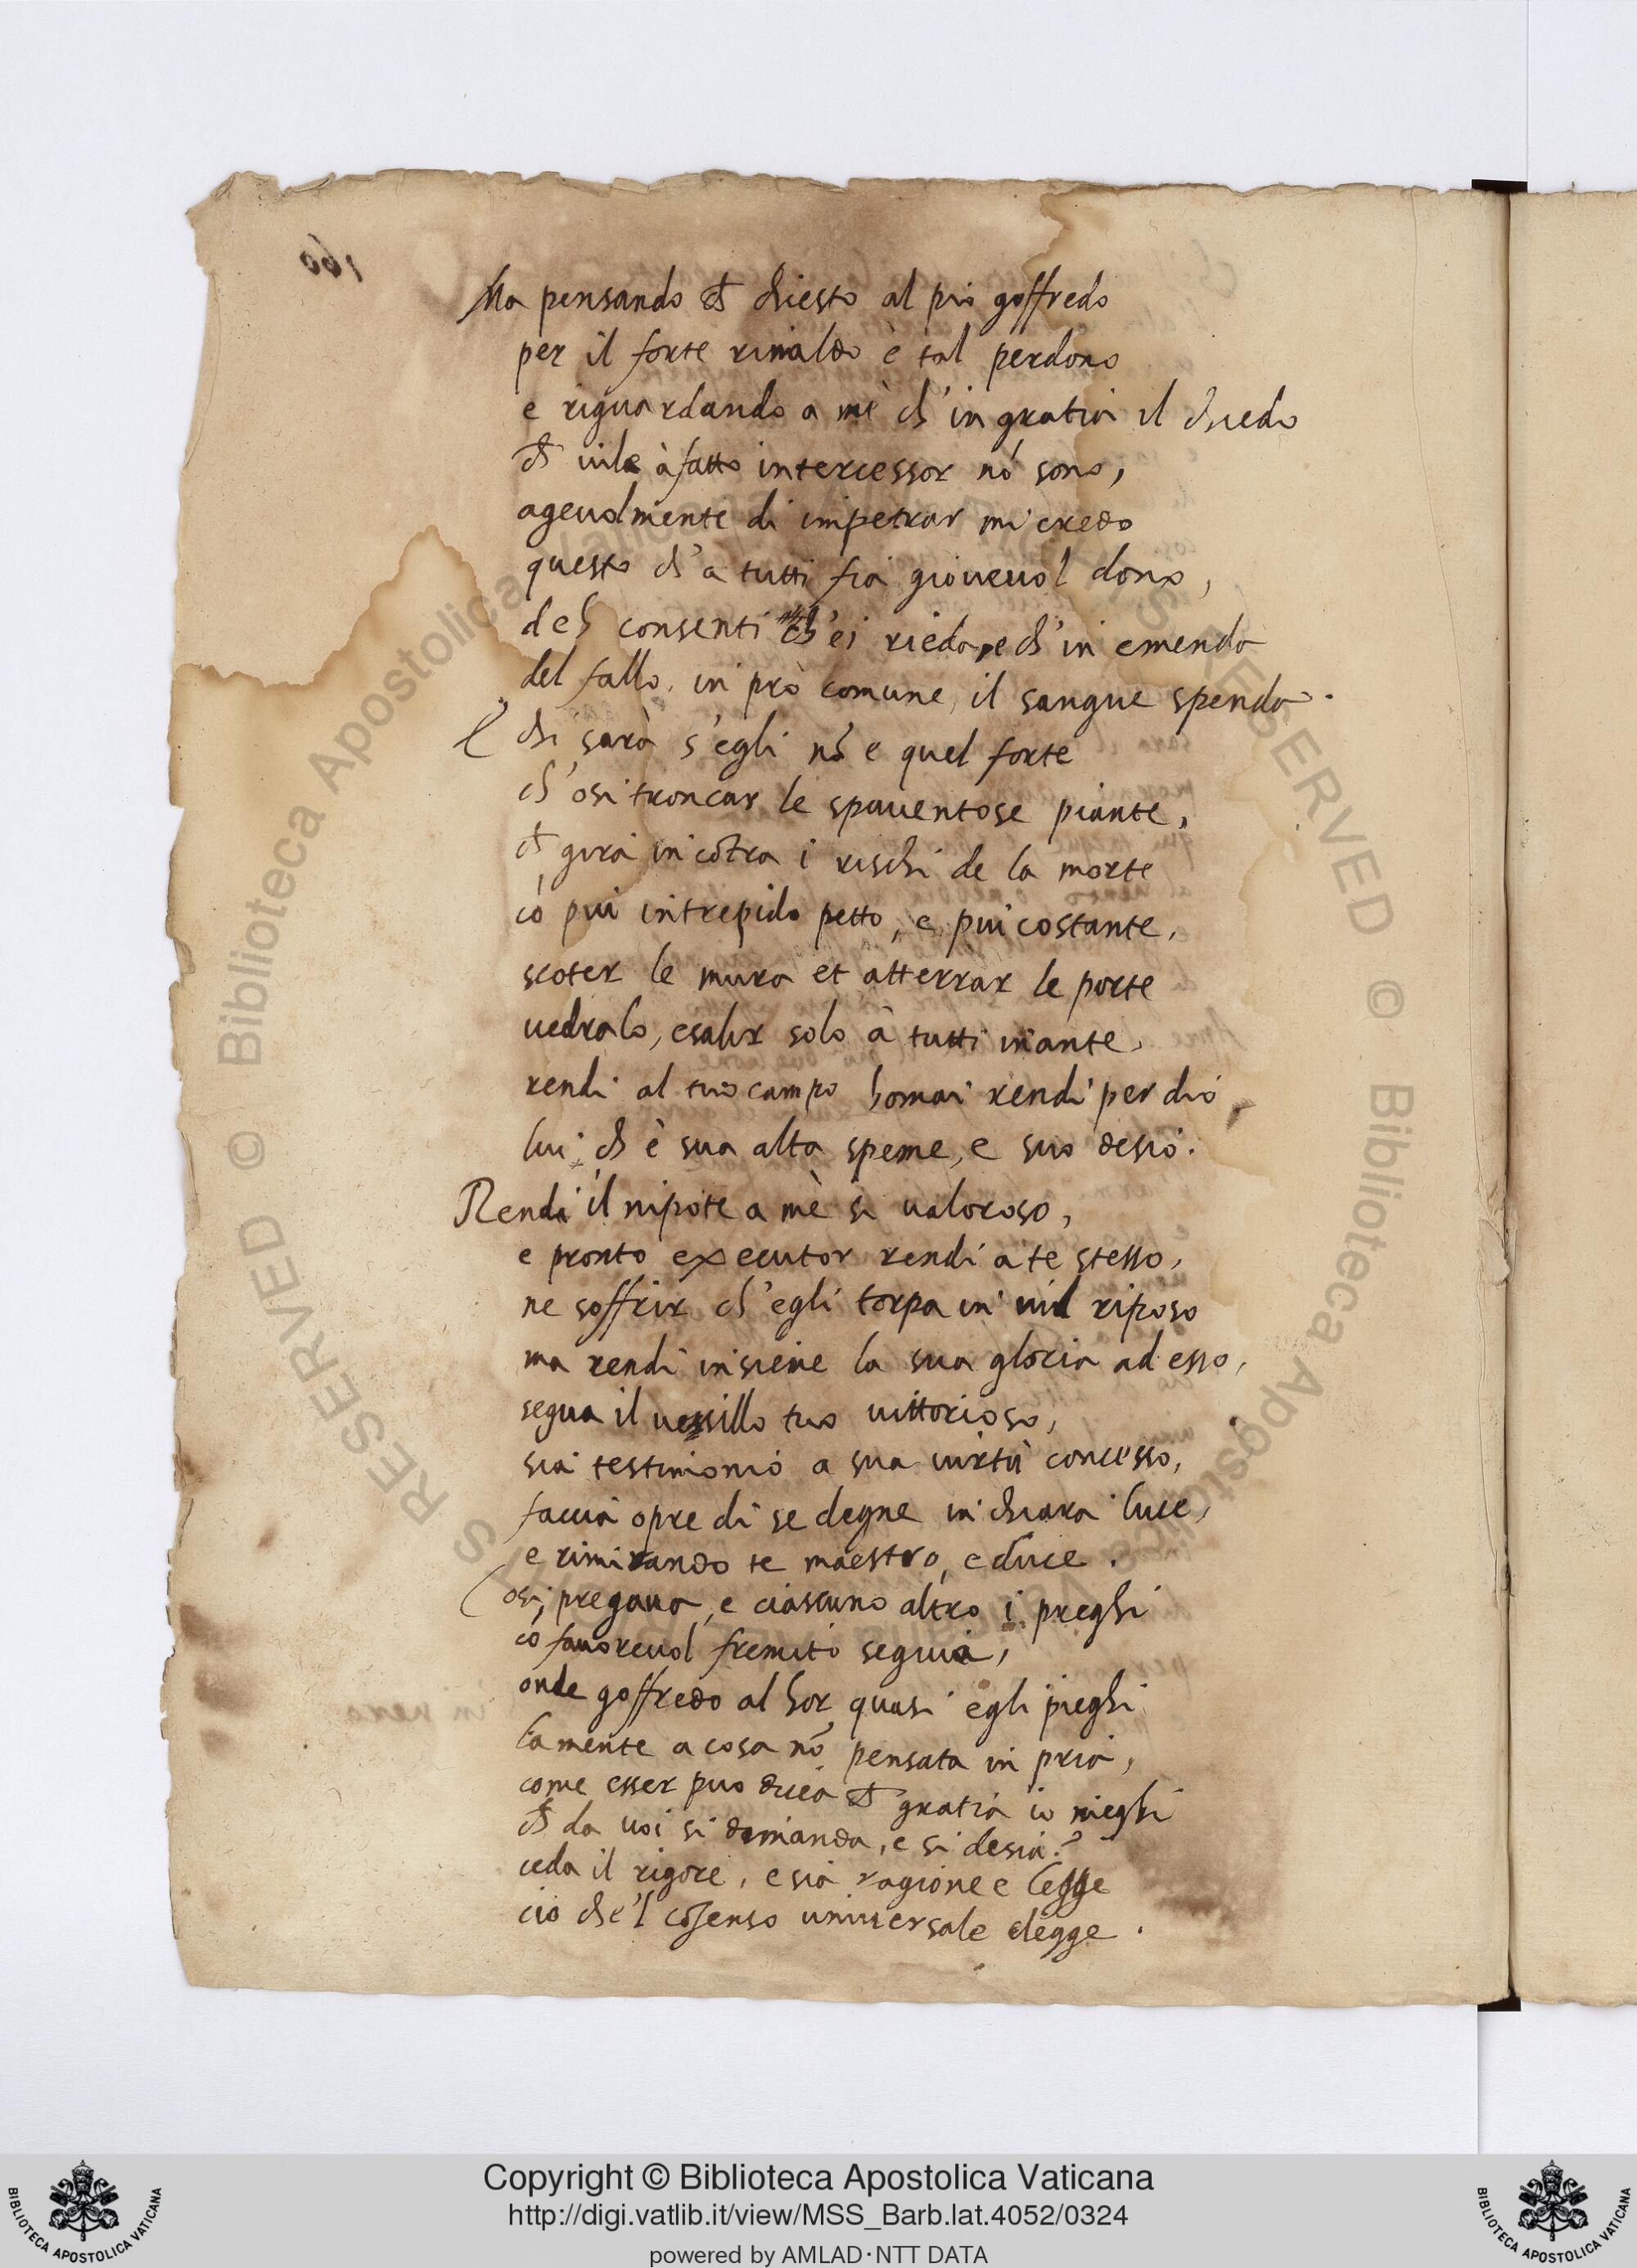 Ma pensando ch̄ chiesto al pio goffredo
per il forte rinaldo è tal perdono
e riguardando a mè ch'in gratia il chiedo
ch̄ vile à fatto intercessor nō sono,
agevolmente di impetrar mi credo
questo ch'a tutti fia giovevol dono,
deh consenti ch'ei rieda, e ch'in emenda
del fallo, in prò comune, il sangue spenda.
E chi sarà s'egli nō e quel forte
ch'osi troncar le spaventose piante,
ch̄ girà in cōtra i rischi de la morte
cō piu intrepido petto, e piu costante,
scoter le mura et atterrar le porte
vedralo, e salir solo à tutti inante,
rendi al tuo campo homai rendi per dio
lui, ch è sua alta speme, e suo desio.
Rendi il nipote a mè si valoroso,
e pronto executor rendi a te stesso,
ne soffrir ch'egli torpa in vil riposo
ma rendi insieme la sua gloria ad esso,
segua il vessillo tuo vittorioso,
sia testimonio a sua virtù concesso,
faccia opre di se degne in chiara luce,
e rimirando te maestro, e duce.
Cosi pregava, e ciascuno altro i preghi
cō favorevol fremito seguia,
onde goffredo al hor quasi egli pieghi
la mente a cosa nō pensata in pria,
come esser puo dicea ch̄ gratia io nieghi
ch̄ da voi si demanda, e si desia?
ceda il rigore, e sia ragione e legge
cio che'l cōsenso universale elegge.
160
© Biblioteca Apostolica Vaticana
Copyright © Biblioteca Apostolica Vaticana
http://digi.vatlib.it/view/MSS_Barb.lat.4052/0324
powered by AMLAD·NTT DATA
BIBLIOTECA APOSTOLICA VATICANA
BIBLIOTECA APOSTOLICA VATICANA